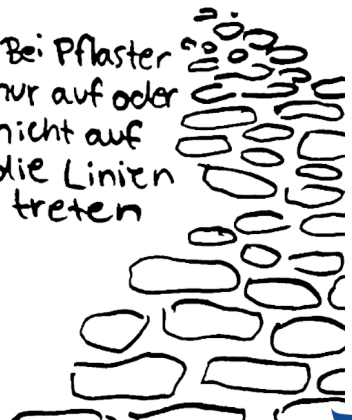 Bei Pflaster
nur auf oder
nicht auf
die Linien
treten